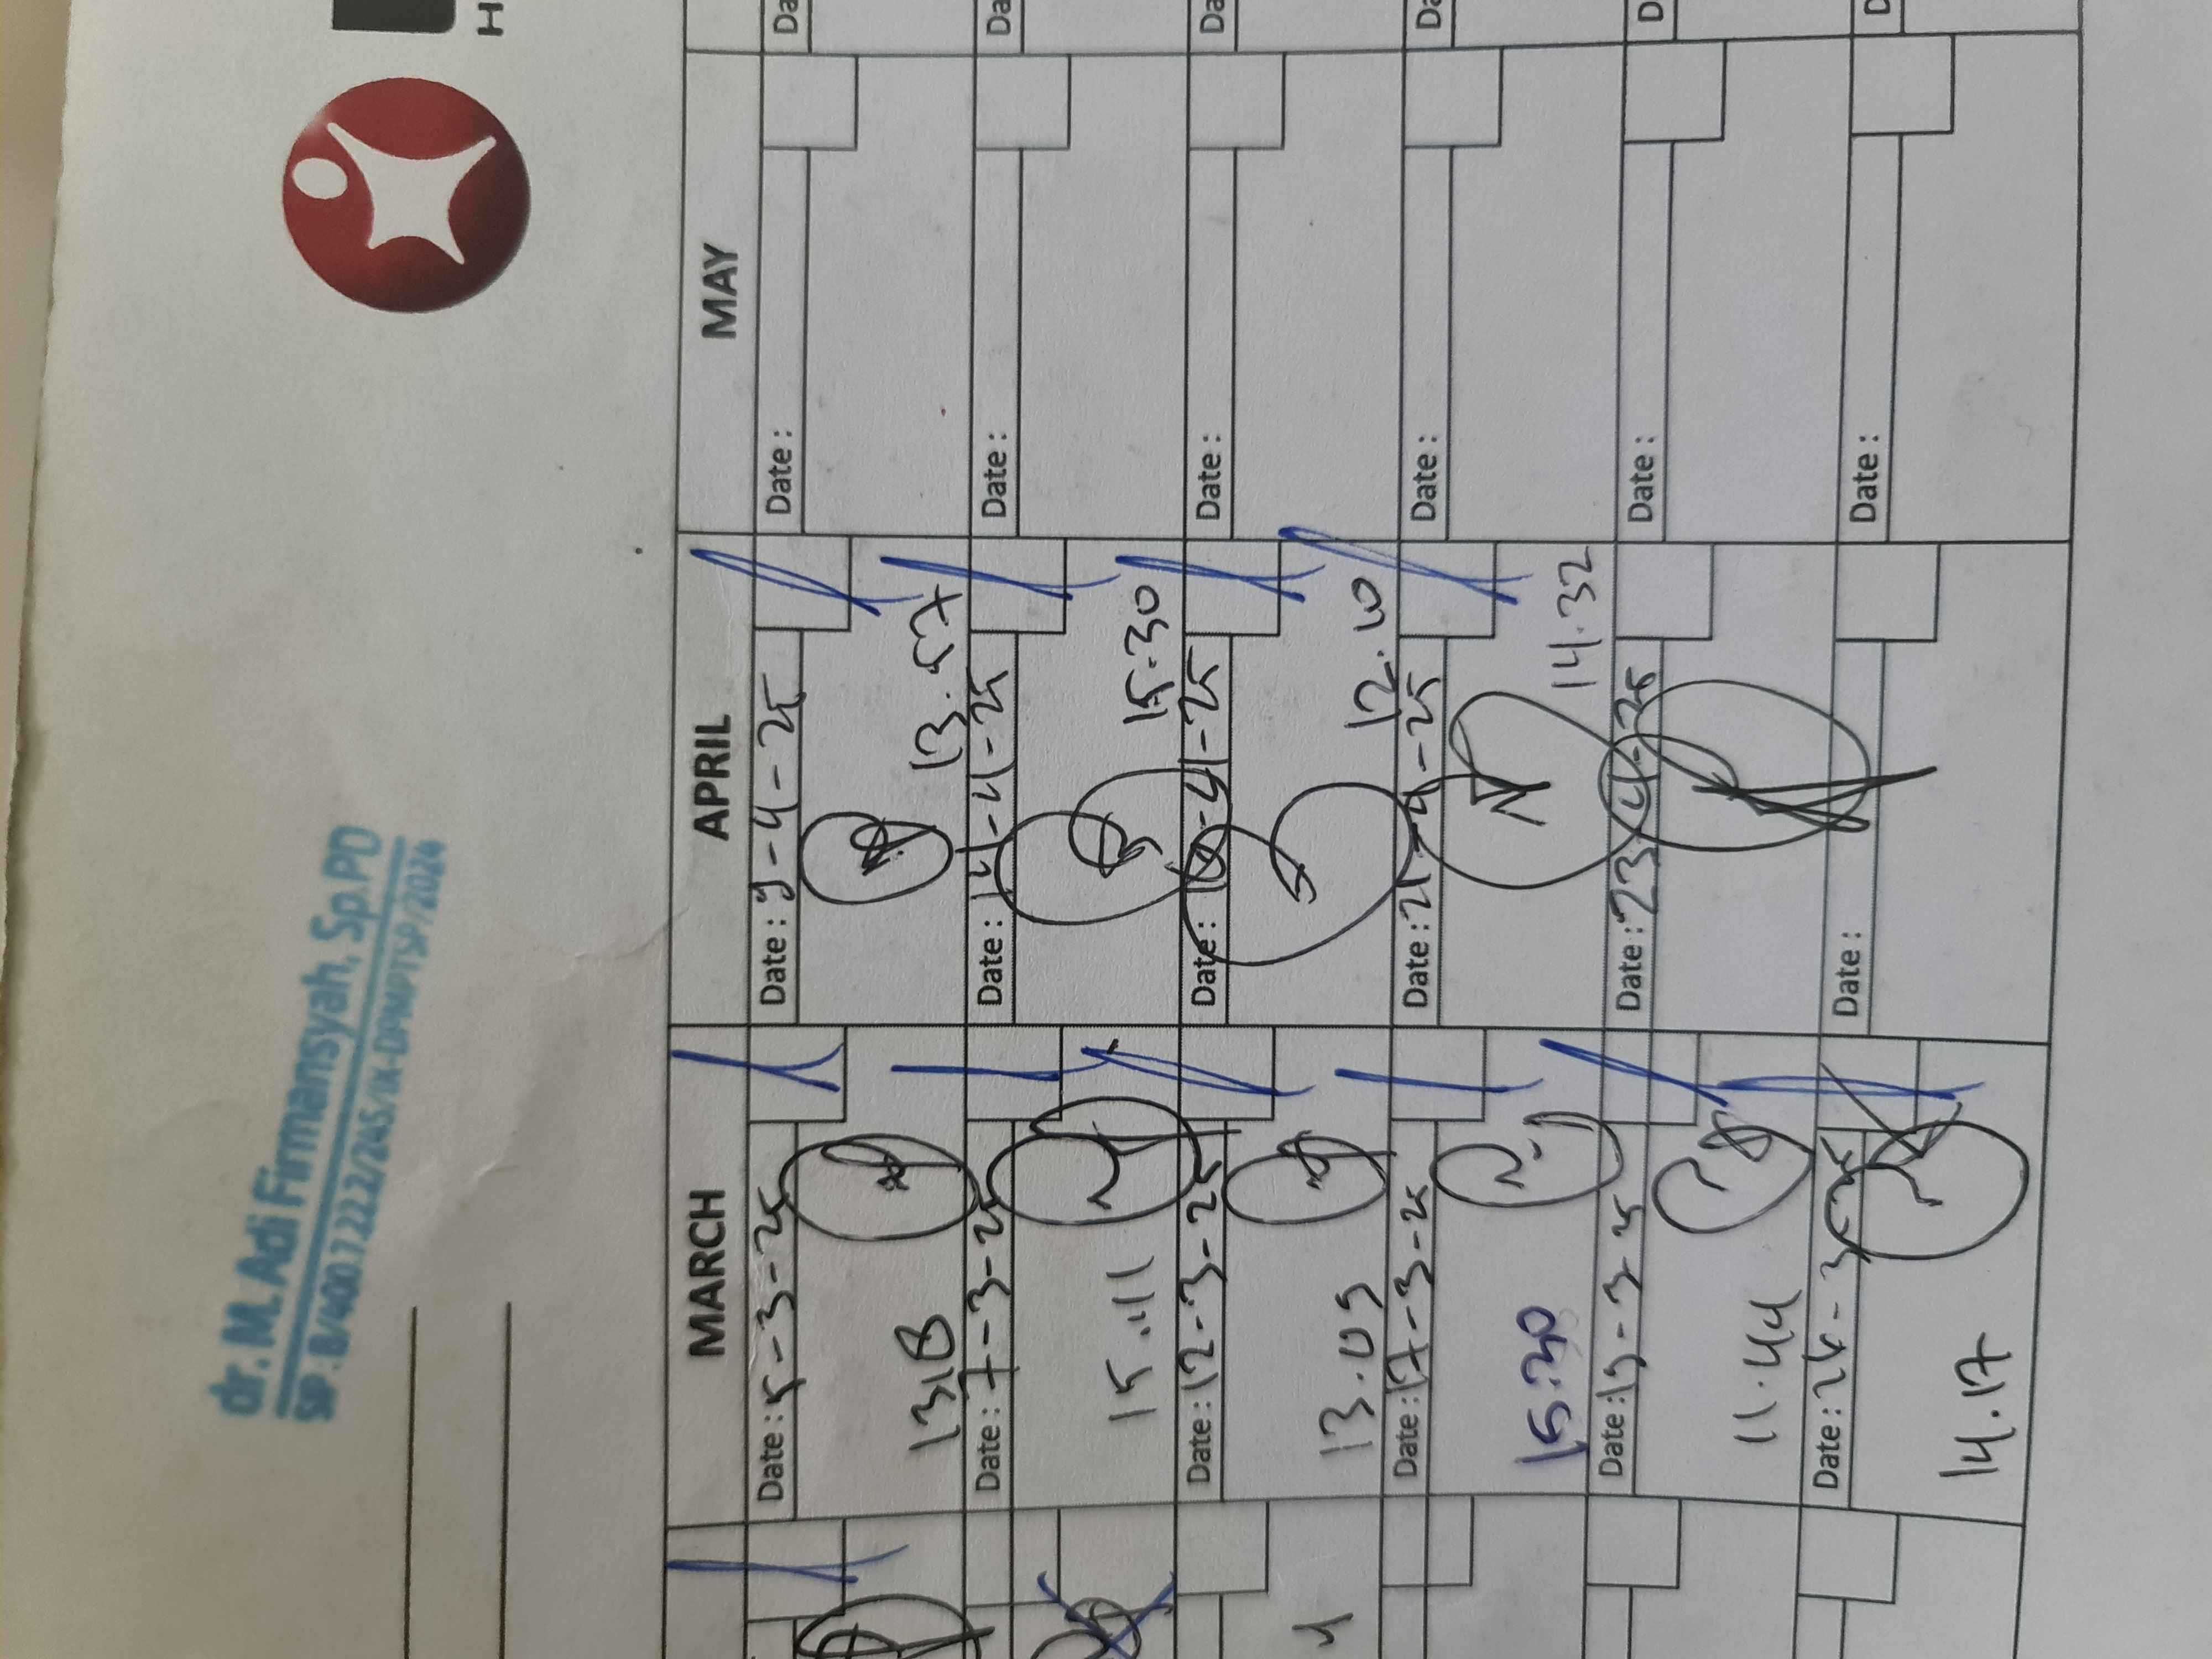 H
dr. M. Adi Firmansyah, Sp.PD
MARCH
APRIL
MAY
Date : 5-3-25
Date : 9-4-25
Date :
Da
13.57
Date : 7-3-25
Date : 14-4-25
Date :
Da
15.41
15.30
Date : 12-3-25
Date : -4-25
Date :
Da
13.09
12.10
Date : 17-3-25
Date : 21-4-25
Date :
Da
15:30
14.32
Date : 19-3-25
Date : 23-4-25
Date :
D
11.44
Date : 26-3-25
Date :
Date :
D
14.17